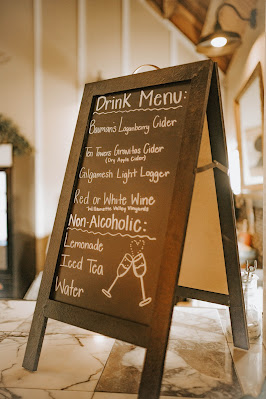 Drink Menu:
Bauman's Loganberry Cider
Ten Towers Gravitas Cider
(Dry Apple Cider)
Gilgamesh Light Lagger
Red or White Wine
Willamette Valley Vineyards
Non-Alcoholic:
Lemonade
Iced Tea
Water